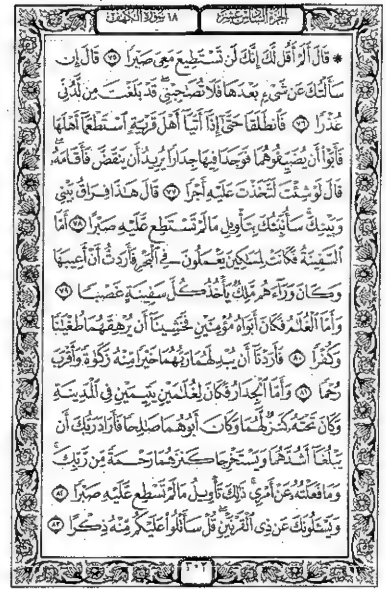 الجزء السادس عشر ١٨ سورة الكهف
* قَالَ أَلَمْ أَقُل لَّكَ إِنَّكَ لَن تَسْتَطِيعَ مَعِيَ صَبْرًا ٧٥ قَالَ إِن
سَأَلْتُكَ عَن شَيْءٍۭ بَعْدَهَا فَلَا تُصَٰحِبْنِي قَدْ بَلَغْتَ مِن لَّدُنِّي
عُذْرًا ٧٦ فَٱنطَلَقَا حَتَّىٰٓ إِذَآ أَتَيَآ أَهْلَ قَرْيَةٍ ٱسْتَطْعَمَآ أَهْلَهَا
فَأَبَوْا۟ أَن يُضَيِّفُوهُمَا فَوَجَدَا فِيهَا جِدَارًا يُرِيدُ أَن يَنقَضَّ فَأَقَامَهُۥ
قَالَ لَوْ شِئْتَ لَتَّخَذْتَ عَلَيْهِ أَجْرًا ٧٧ قَالَ هَٰذَا فِرَاقُ بَيْنِي
وَبَيْنِكَ سَأُنَبِّئُكَ بِتَأْوِيلِ مَا لَمْ تَسْتَطِع عَّلَيْهِ صَبْرًا ٧٨ أَمَّا
ٱلسَّفِينَةُ فَكَانَتْ لِمَسَٰكِينَ يَعْمَلُونَ فِي ٱلْبَحْرِ فَأَرَدتُّ أَنْ أَعِيبَهَا
وَكَانَ وَرَآءَهُم مَّلِكٌ يَأْخُذُ كُلَّ سَفِينَةٍ غَصْبًا ٧٩
وَأَمَّا ٱلْغُلَٰمُ فَكَانَ أَبَوَاهُ مُؤْمِنَيْنِ فَخَشِينَآ أَن يُرْهِقَهُمَا طُغْيَٰنًا
وَكُفْرًا ٨٠ فَأَرَدْنَآ أَن يُبْدِلَهُمَا رَبُّهُمَا خَيْرًا مِّنْهُ زَكَوٰةً وَأَقْرَبَ
رُحْمًا ٨١ وَأَمَّا ٱلْجِدَارُ فَكَانَ لِغُلَٰمَيْنِ يَتِيمَيْنِ فِي ٱلْمَدِينَةِ
وَكَانَ تَحْتَهُۥ كَنزٌ لَّهُمَا وَكَانَ أَبُوهُمَا صَٰلِحًا فَأَرَادَ رَبُّكَ أَن
يَبْلُغَآ أَشُدَّهُمَا وَيَسْتَخْرِجَا كَنزَهُمَا رَحْمَةً مِّن رَّبِّكَ
وَمَا فَعَلْتُهُۥ عَنْ أَمْرِي ذَٰلِكَ تَأْوِيلُ مَا لَمْ تَسْطِع عَّلَيْهِ صَبْرًا ٨٢
وَيَسْـَٔلُونَكَ عَن ذِي ٱلْقَرْنَيْنِ قُلْ سَأَتْلُوا۟ عَلَيْكُم مِّنْهُ ذِكْرًا ٨٣
٣٠٢